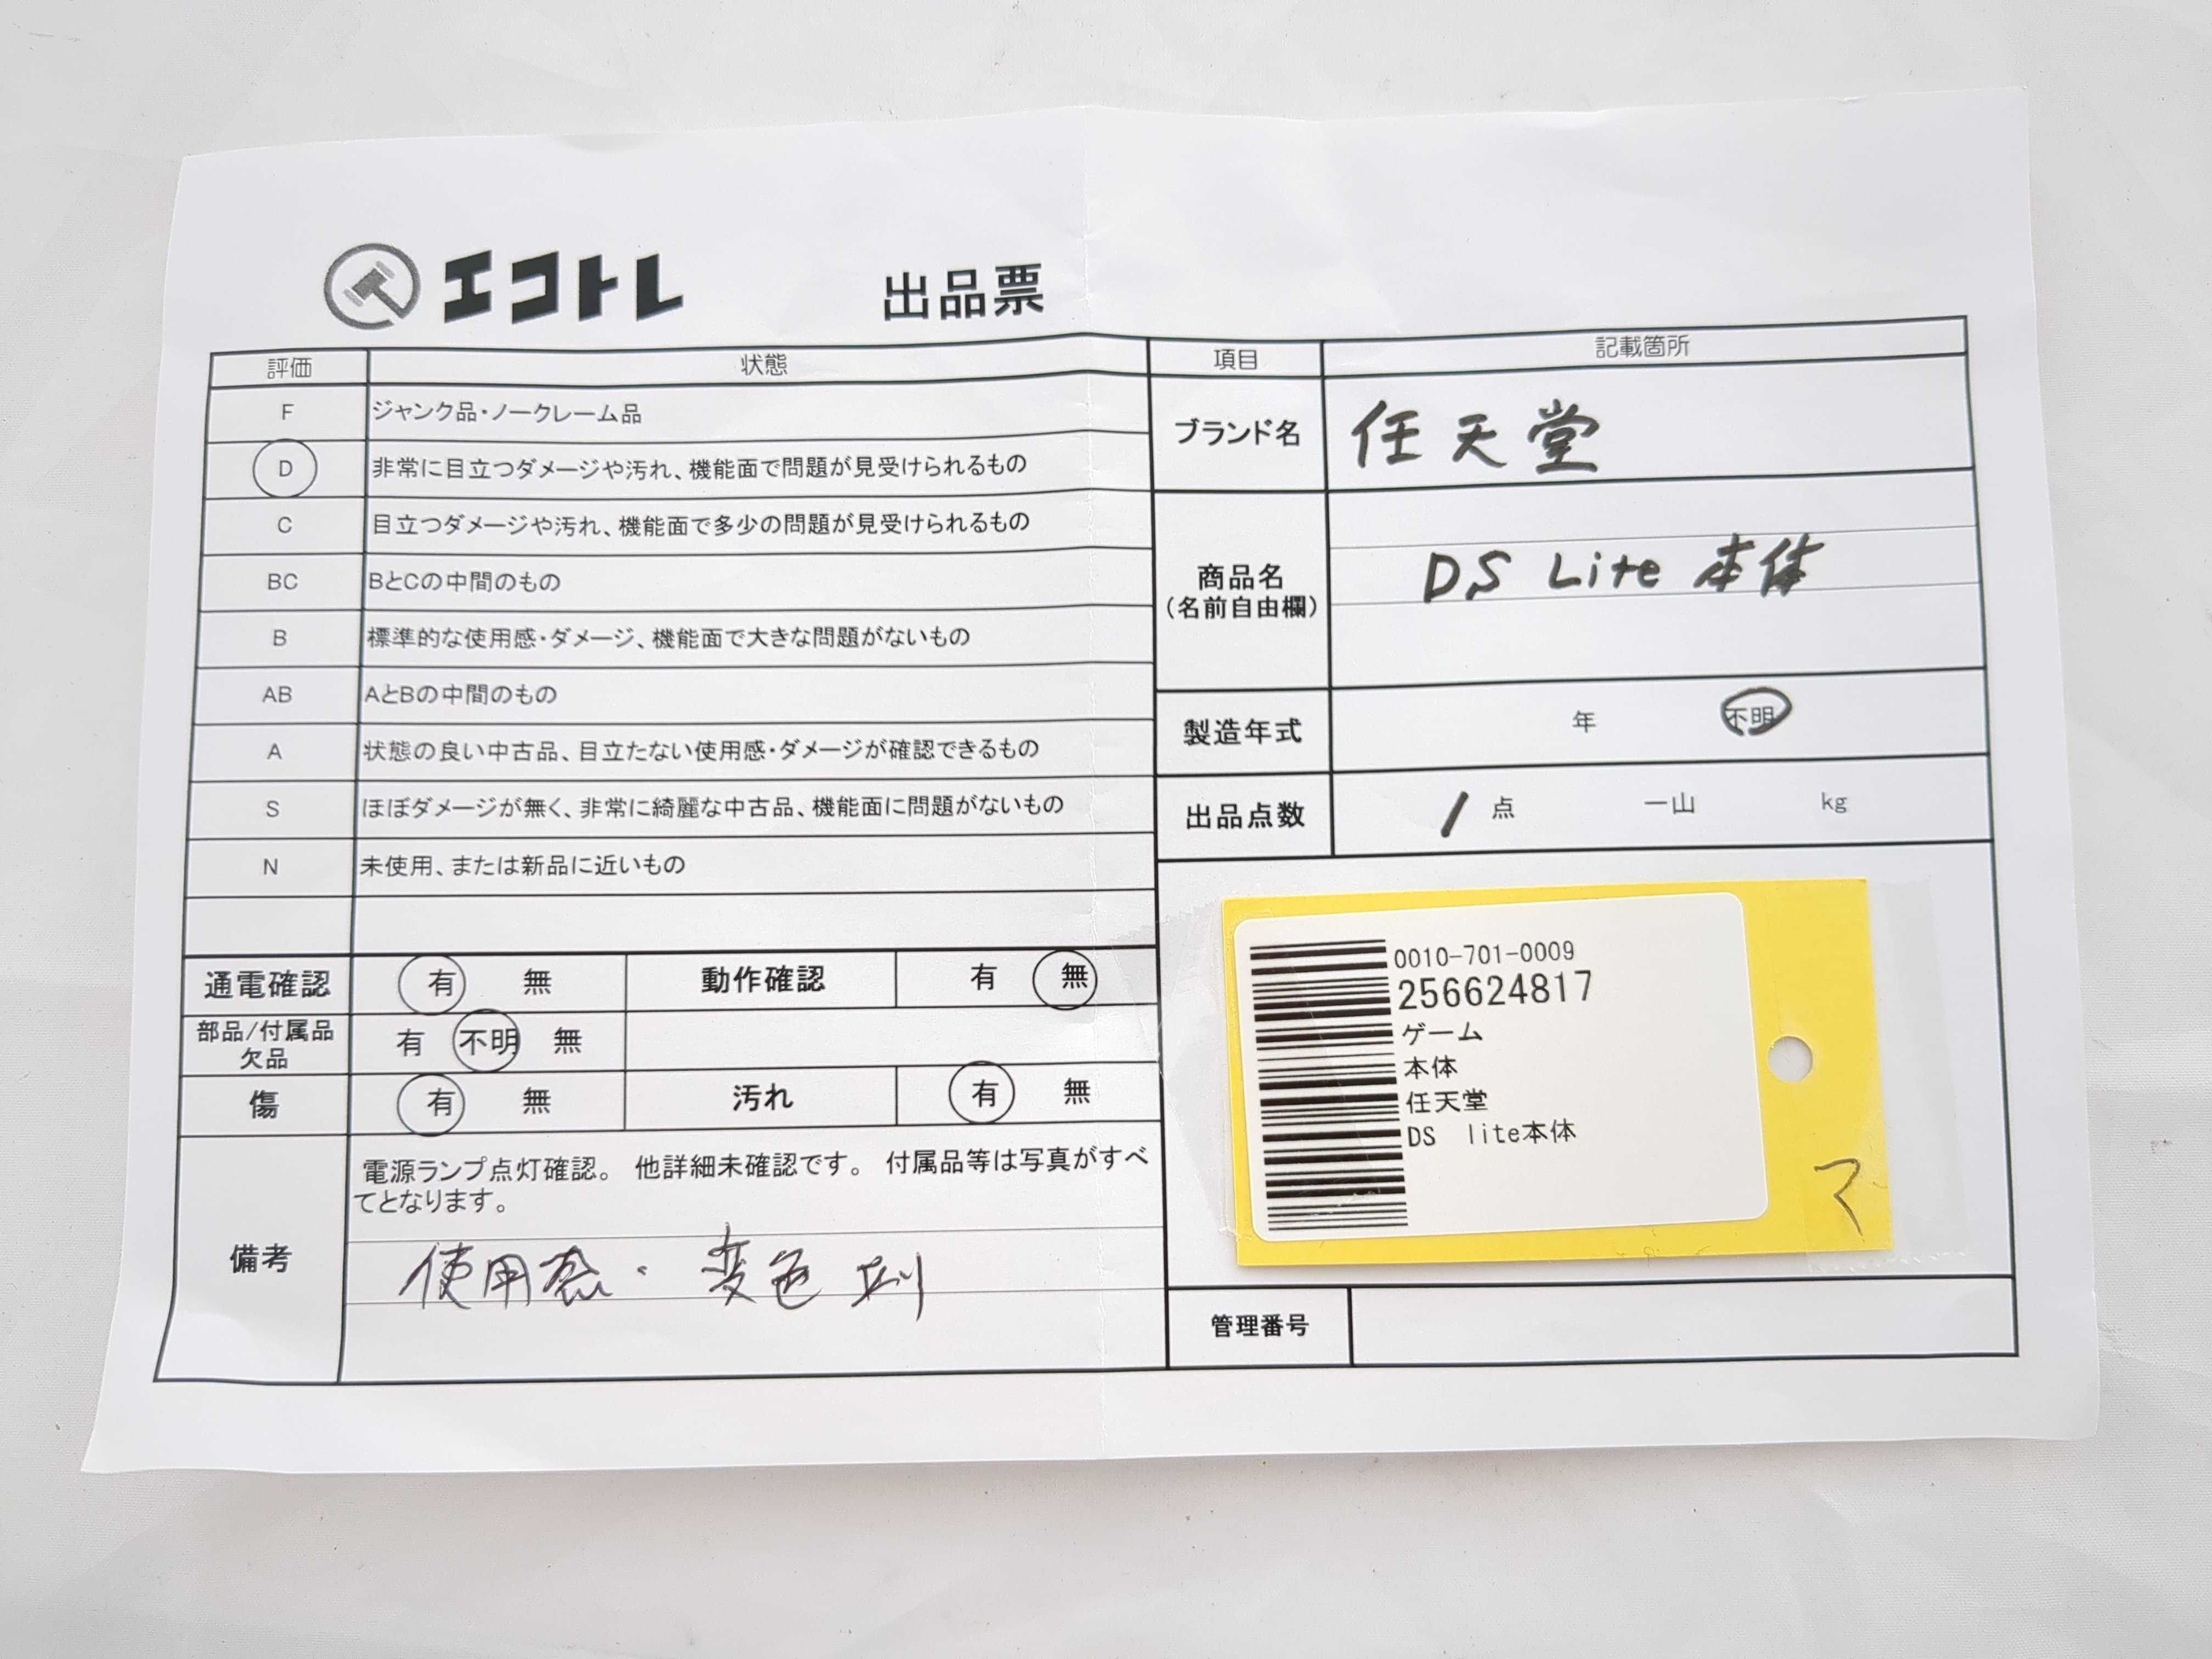 エコトレ 出品票
評価 状態
F ジャンク品・ノークレーム品
D 非常に目立つダメージや汚れ、機能面で問題が見受けられるもの
C 目立つダメージや汚れ、機能面で多少の問題が見受けられるもの
BC BとCの中間のもの
B 標準的な使用感・ダメージ、機能面で大きな問題がないもの
AB AとBの中間のもの
A 状態の良い中古品、目立たない使用感・ダメージが確認できるもの
S ほぼダメージが無く、非常に綺麗な中古品、機能面に問題がないもの
N 未使用、または新品に近いもの
通電確認 有 無 動作確認 有 無
部品/付属品
欠品 有 不明 無
傷 有 無 汚れ 有 無
備考
電源ランプ点灯確認。 他詳細未確認です。 付属品等は写真がすべ
てとなります。
使用感・変色
項目 記載箇所
ブランド名 任天堂
商品名
(名前自由欄)
DS Lite 本体
製造年式 年 不明
出品点数 1 点 一山 kg
0010-701-0009
256624817
ゲーム
本体
任天堂
DS lite本体
マ
管理番号